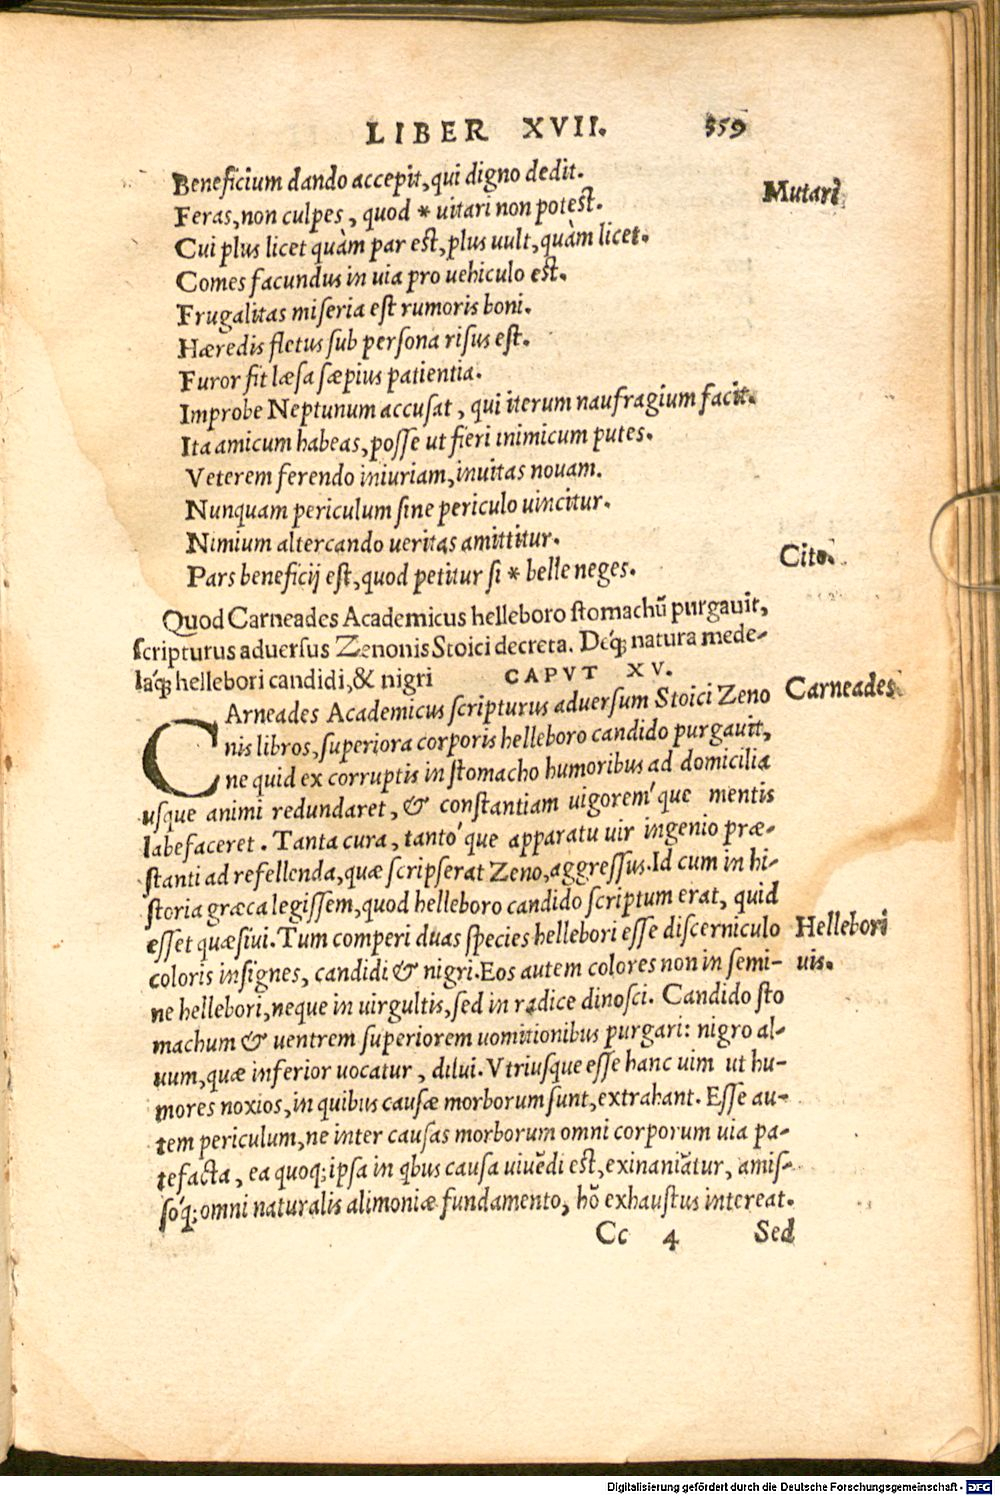 LIBER XVII. 359
Beneficium dando accepit, qui digno dedit.
Feras, non culpes, quod * uitari non potest. Mutari
Cui plus licet quàm par est, plus uult, quàm licet.
Comes facundus in uia pro uehiculo est.
Frugalitas miseria est rumoris boni.
Hæredis fletus sub persona risus est.
Furor fit læsa sæpius patientia.
Improbe Neptunum accusat, qui iterum naufragium facit.
Ita amicum habeas, posse ut fieri inimicum putes.
Veterem ferendo iniuriam, inuitas nouam.
Nunquam periculum sine periculo uincitur.
Nimium altercando ueritas amittitur.
Pars beneficij est, quod petitur si * belle neges. Cito.
Quod Carneades Academicus helleboro stomachū purgauit,
scripturus aduersus Zenonis Stoici decreta. Deq́; natura mede-
laq́; hellebori candidi, & nigri CAPVT XV.
CArneades Academicus scripturus aduersum Stoici Zeno Carneades
nis libros, superiora corporis helleboro candido purgauit,
ne quid ex corruptis in stomacho humoribus ad domicilia
usque animi redundaret, & constantiam uigoreḿ que mentis
labefaceret. Tanta cura, tantó que apparatu uir ingenio præ-
stanti ad refellenda, quæ scripserat Zeno, aggressus. Id cum in hi-
storia græca legissem, quod helleboro candido scriptum erat, quid
esset quæsiui. Tum comperi duas species hellebori esse discerniculo Hellebori
coloris insignes, candidi & nigri. Eos autem colores non in semi- uis.
ne hellebori, neque in uirgultis, sed in radice dinosci. Candido sto
machum & uentrem superiorem uomitionibus purgari: nigro al-
uum, quæ inferior uocatur, dilui. Vtriusque esse hanc uim ut hu-
mores noxios, in quibus causæ morborum sunt, extrahant. Esse au-
tem periculum, ne inter causas morborum omni corporum uia pa-
tefacta, ea quoq; ipsa in qbus causa uiuēdi est, exinaniātur, amis-
soq́; omni naturalis alimoniæ fundamento, hō exhaustus intereat.
Cc 4 Sed
Digitalisierung gefördert durch die Deutsche Forschungsgemeinschaft - DFG